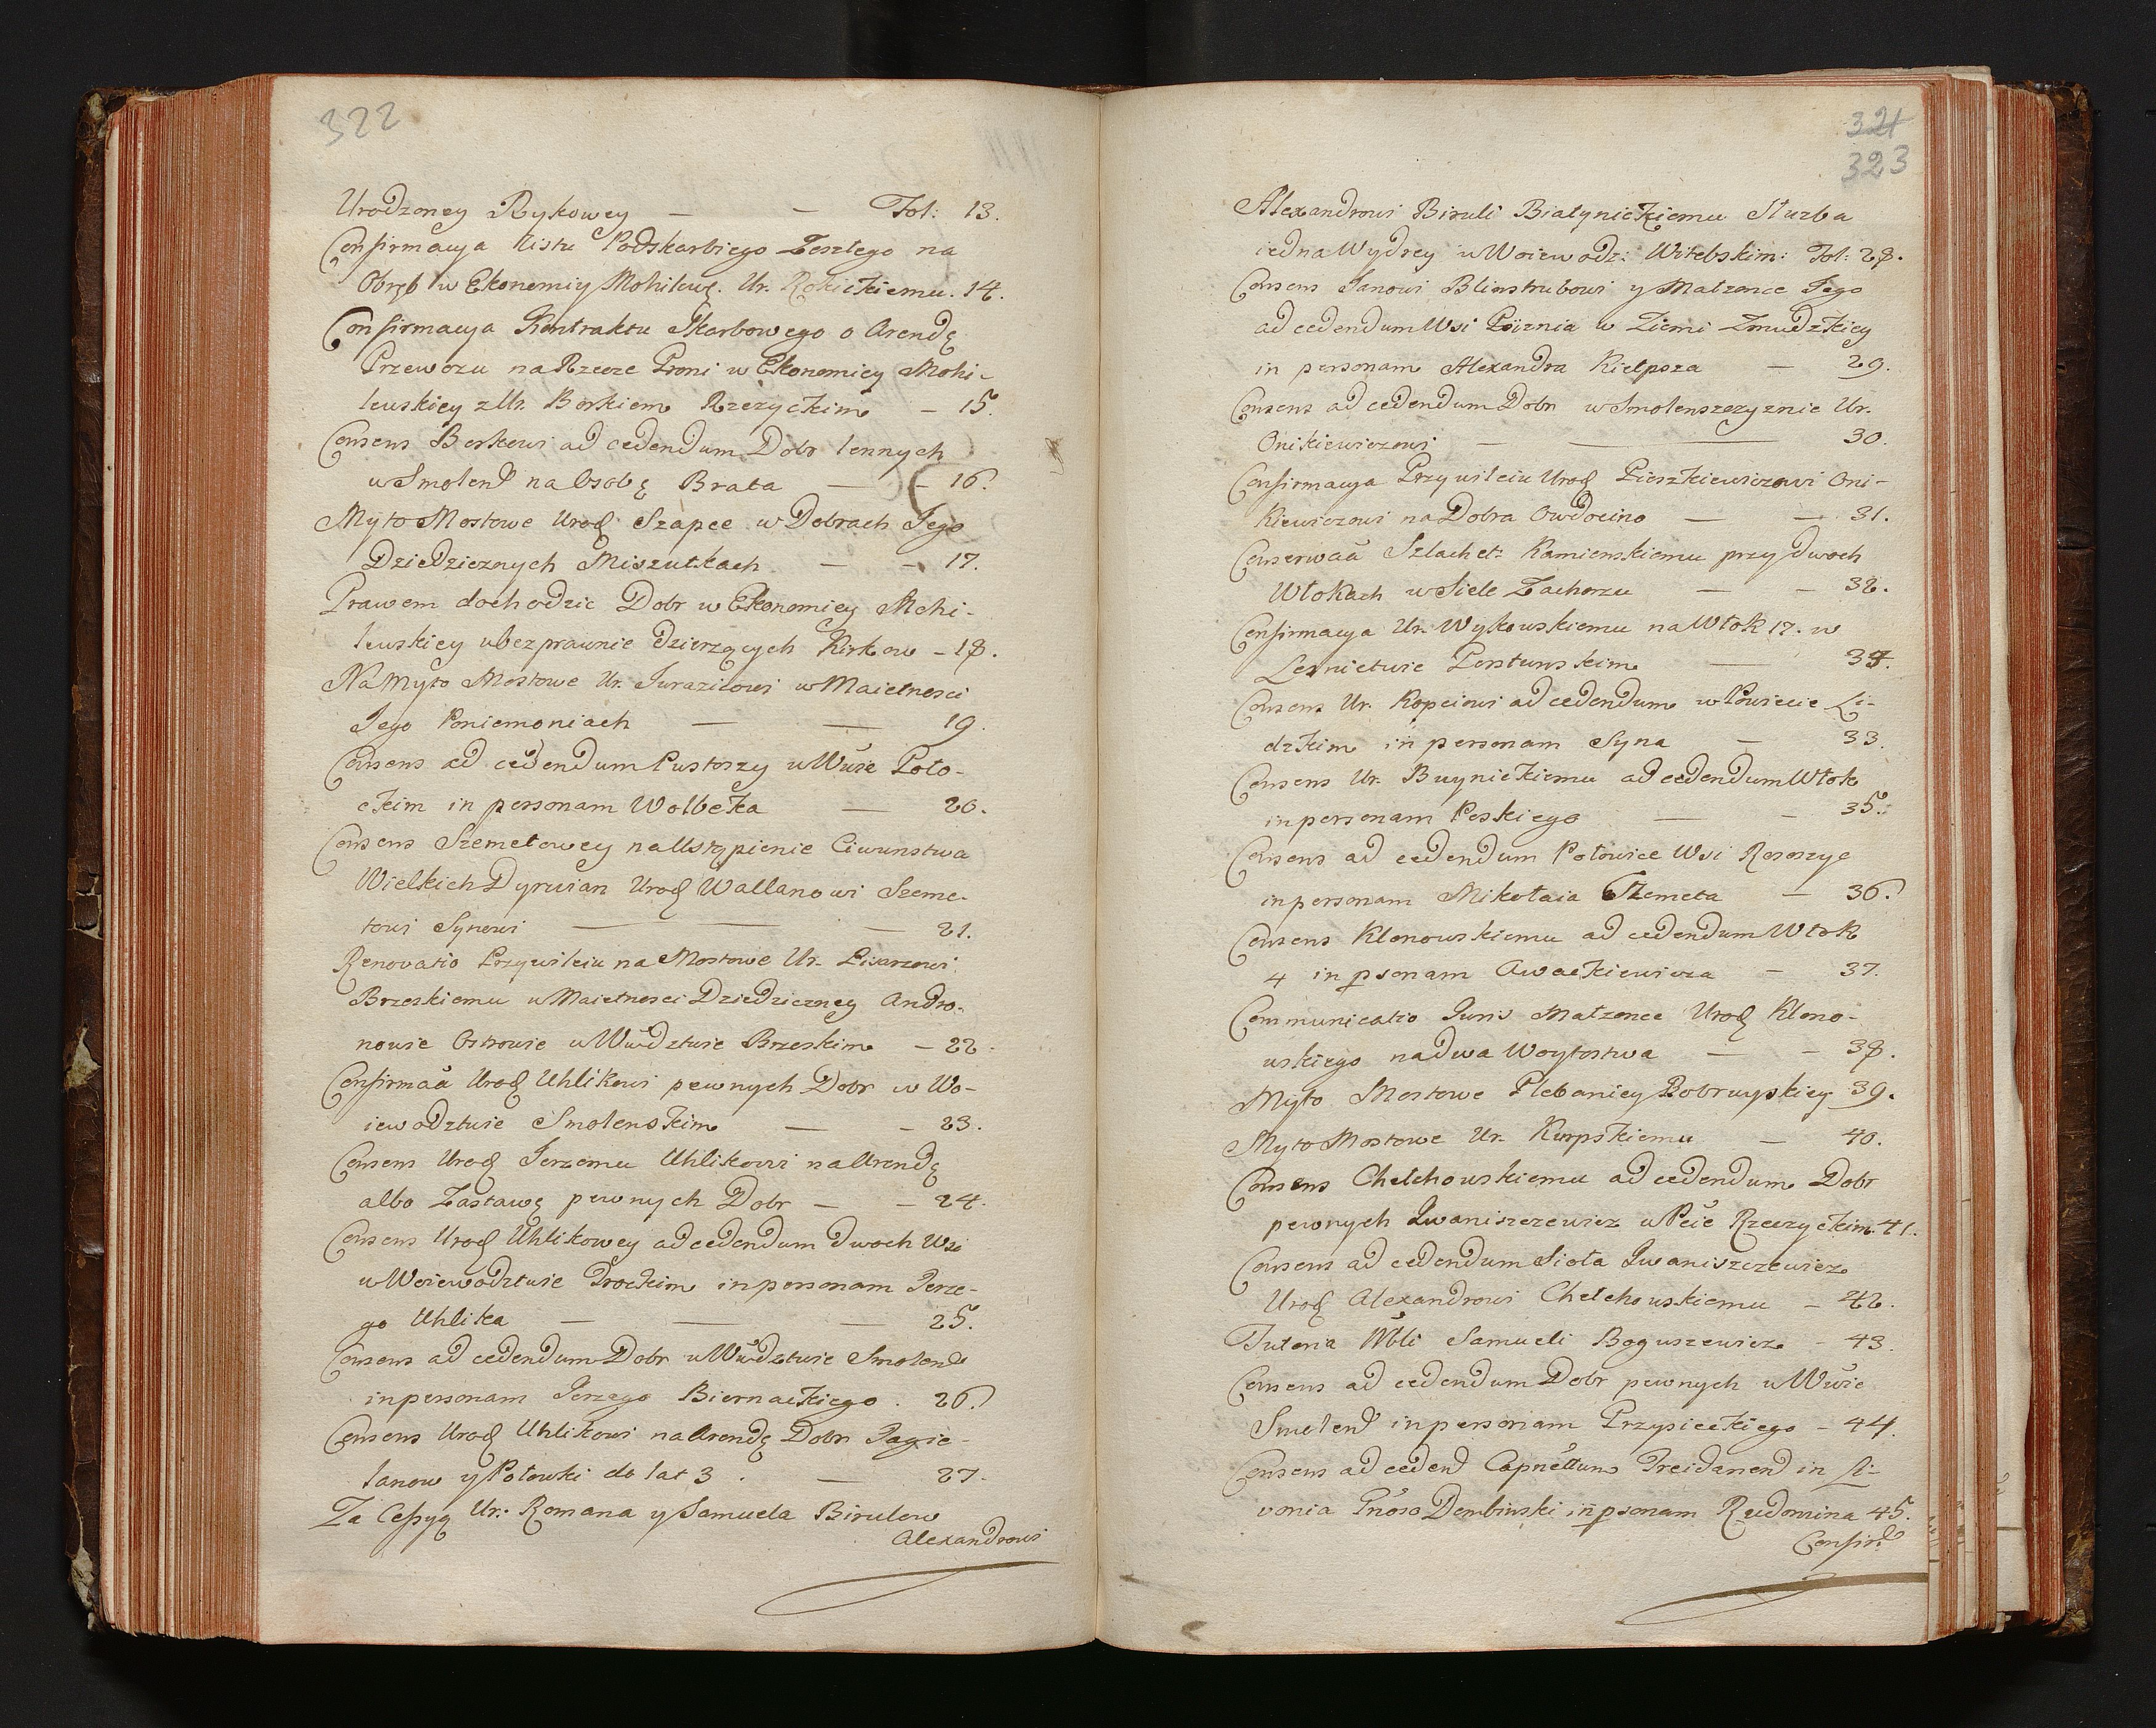 322
Urodzoney Rykowey — — Fol: 13.
Confirmacya Listu Podskarbiego Zeszłego na
Obręb w Ekonomiy Mohilews. Ur. Rokickiemu. 14.
Confirmacya Kontraktu Skarbowego o Arendę
Przewozu na Rzece Proni w Ekonomiey Mohi-
lewskiey z Ur. Borkiem Rzeczyckim — 15.
Consens Borkowi ad cedendum Dobr lennych
w Smolen na Osobę Brata — — 16.
Myto Mostowe Urod Szapce w Dobrach Jego
Dziedzicznych Miszutkach — — 17.
Prawem dochodzic Dobr w Ekonomiey Mohi-
lewskiey u bezprawnie dzierzących Kirkow — 18.
Na Myto Mostowe Ur. Jurazicowi w Maietnosci
Jego Poniemoniach — — 19.
Consens ad cedendum Pustoszy w Wwie Poło-
ckim in personam Wolbeka — 20.
Consens Szemetowey na Ustąpienie Ciwunstwa
Wielkich Dyrwian Urod Wallanowi Szeme-
towi Synowi — — — 21.
Renovatio Przywileiu na Mostowe Ur. Pisarzowi
Brzeskiemu w Maietnosci Dziedziczney Andro-
nowie Ostrowie w Wwdztwie Brzeskim — 22.
Confirmaa Urod Uhlikowi pewnych Dobr w Wo-
iewodztwie Smolenskim — — 23.
Consens Urod Jerzemu Uhlikowi na Arendę
albo Zastawę pewnych Dobr — — 24.
Consens Urod Uhlikowey ad cedendum dwoch Wsi
w Woiewodztwie Trockim in personam Jerze-
go Uhlika — — — 25.
Consens ad cedendum Dobr w Wwdztwie Smolen
in personam Jerzego Biernackiego . 26.
Consens Urod Uhlikowi na Arendę Dobr Jagie-
lanow y Połowki do lat 3 . — 27.
Za Cessyą Ur: Romana y Samuela Birulow
Alexandrowi
321
323
Alexandrowi Biruli Białynickiemu Słuzba
iedna Wydrey w Woiewodz: Witebskim: Fol: 28.
Consens Janowi Blinstrubowi y Małzonce Jego
ad cedendum Wsi Poiznia w Ziemi Zmudzkiey
in personam Alexandra Kiełpsza — 29.
Consens ad cedendum Dobr w Smolenszczyznie Ur.
Onikiewiczowi — — 30.
Confirmacya Przywileiu Urod Pieszkiewiczowi Oni-
kiewiczowi na Dobra Owdocino — — 31.
Conserwaa Szlachet: Kamienskiemu przy dwoch
Włokach w Siele Zachorzu — — 32.
Confirmacya Ur. Wykowskiemu na Włok 17. w
Lesnictwie Perstunskim — 34.
Consens Ur. Kopciowi ad cedendum w Powiecie Li-
dzkim in personam Syna — 33.
Consens Ur. Buynickiemu ad cedendum Włok
in personam Peskiego — — 35.
Consens ad cedendum Połowice Wsi Rososzyc
in personam Mikołaia Szemeta — 36.
Consens Klonowskiemu ad cedendum Włok
4 in psonam Awackiewicza — 37.
Communicatio Juris Małzonce Urod Klono-
wskiego na dwa Woytostwa — — 38.
Myto Mostowe Plebaniey Bobruyskiey 39.
Myto Mostowe Ur. Kurpskiemu — 40.
Consens Chelchowskiemu ad cedendum Dobr
pewnych Iwaniszczewicz w Pcie Rzeczyckim. 41.
Consens ad cedendum Sioła Iwaniszczewicz
Urod Alexandrowi Chelchowskiemu — 42.
Tutoria Nbli Samueli Boguszewicz — 43.
Consens ad cedendum Dobr pewnych w Wwie
Smolen in personam Przysieckiego — 44.
Consens ad cedend Capnettum Treidanen in Li-
vonia Gnoso Dembinski in psonam Rudomina 45.
Confir